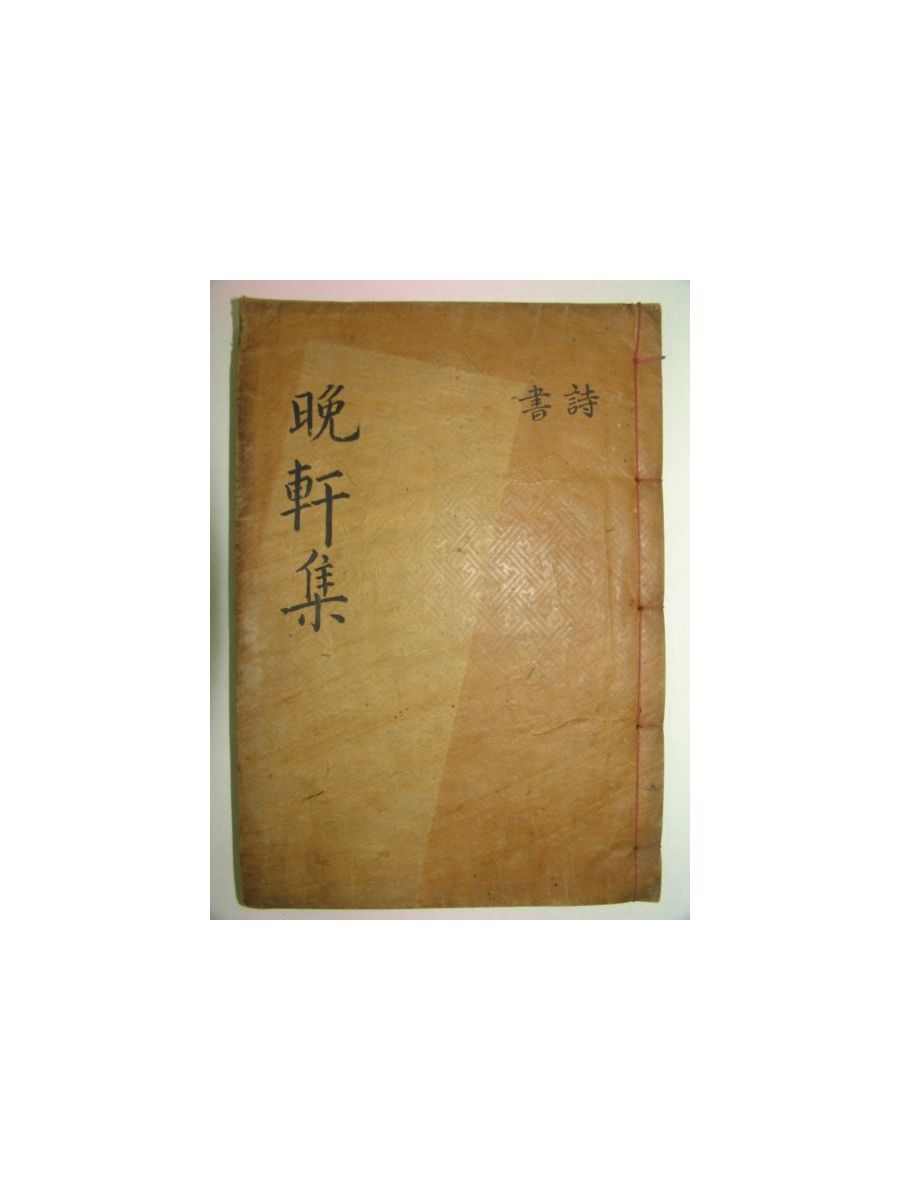 晩軒集
詩
書